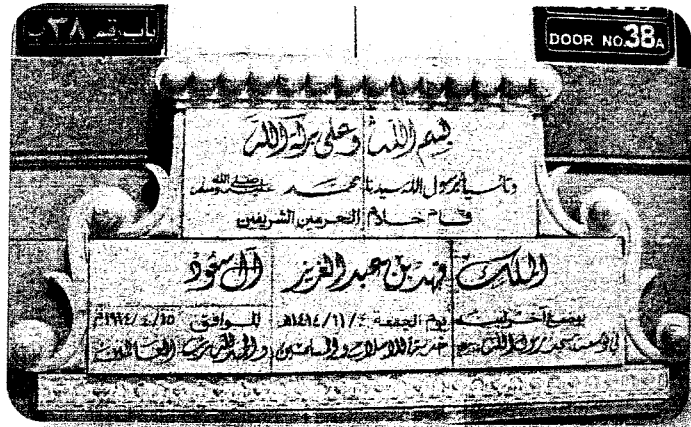 باب رقم ٣٨ ب
DOOR NO. 38A
بسم الله وعلى بركة الله
وتأسياً برسول الله سيدنا محمد صلى الله عليه وسلم
قام خادم الحرمين الشريفين
الملك فهد بن عبد العزيز آل سعود
بوضع آخر لبنة يوم الجمعة ٤/١١/١٤١٤هـ الموافق ١٥/٤/١٩٩٤م
في توسعة مسجد رسول الله خدمة للاسلام والمسلمين والحمد لله رب العالمين